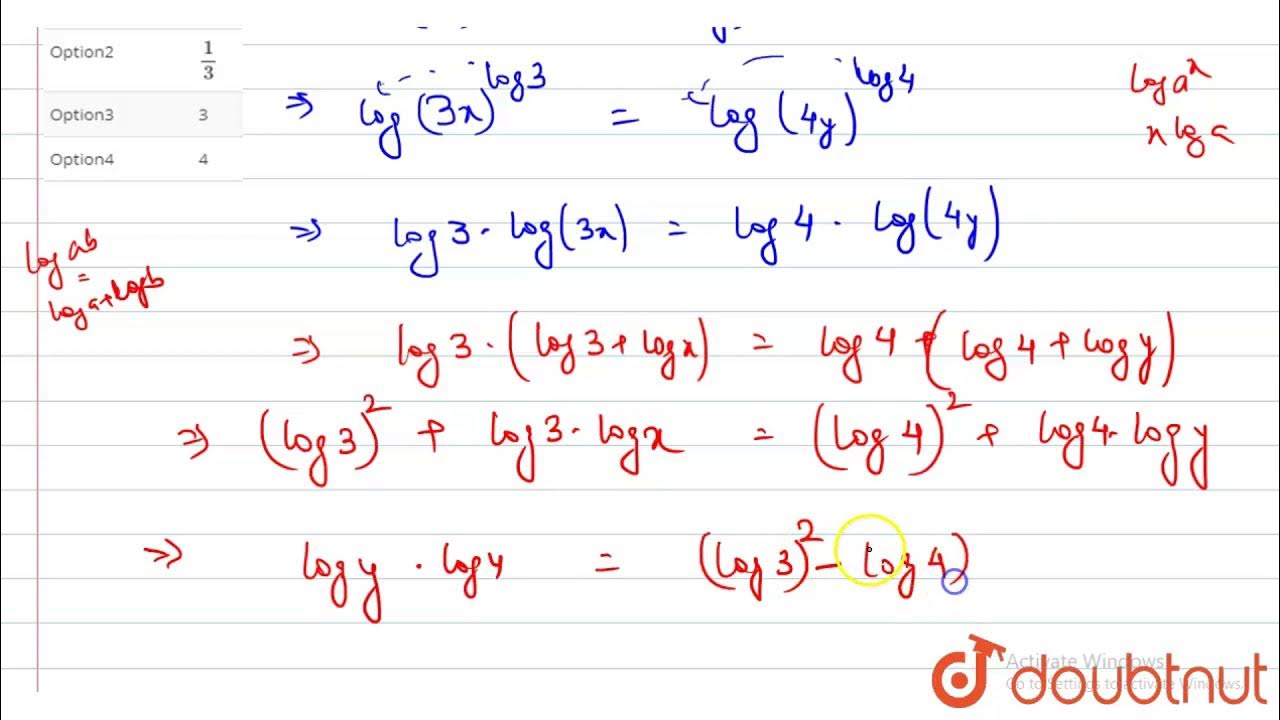 Option2 1/3
Option3 3
Option4 4
⇒ log(3x)^log3 = log(4y)^log4
log a^x
x log a
⇒ log3 · log(3x) = log4 · log(4y)
log ab
=
log a + log b
⇒ log3 · (log3 + log x) = log4 · (log4 + log y)
⇒ (log3)^2 + log3 · log x = (log4)^2 + log4 · log y
⇒ log y · log4 = (log3)^2 - log4)
Activate Windows
Go to Settings to activate Windows.
doubtnut